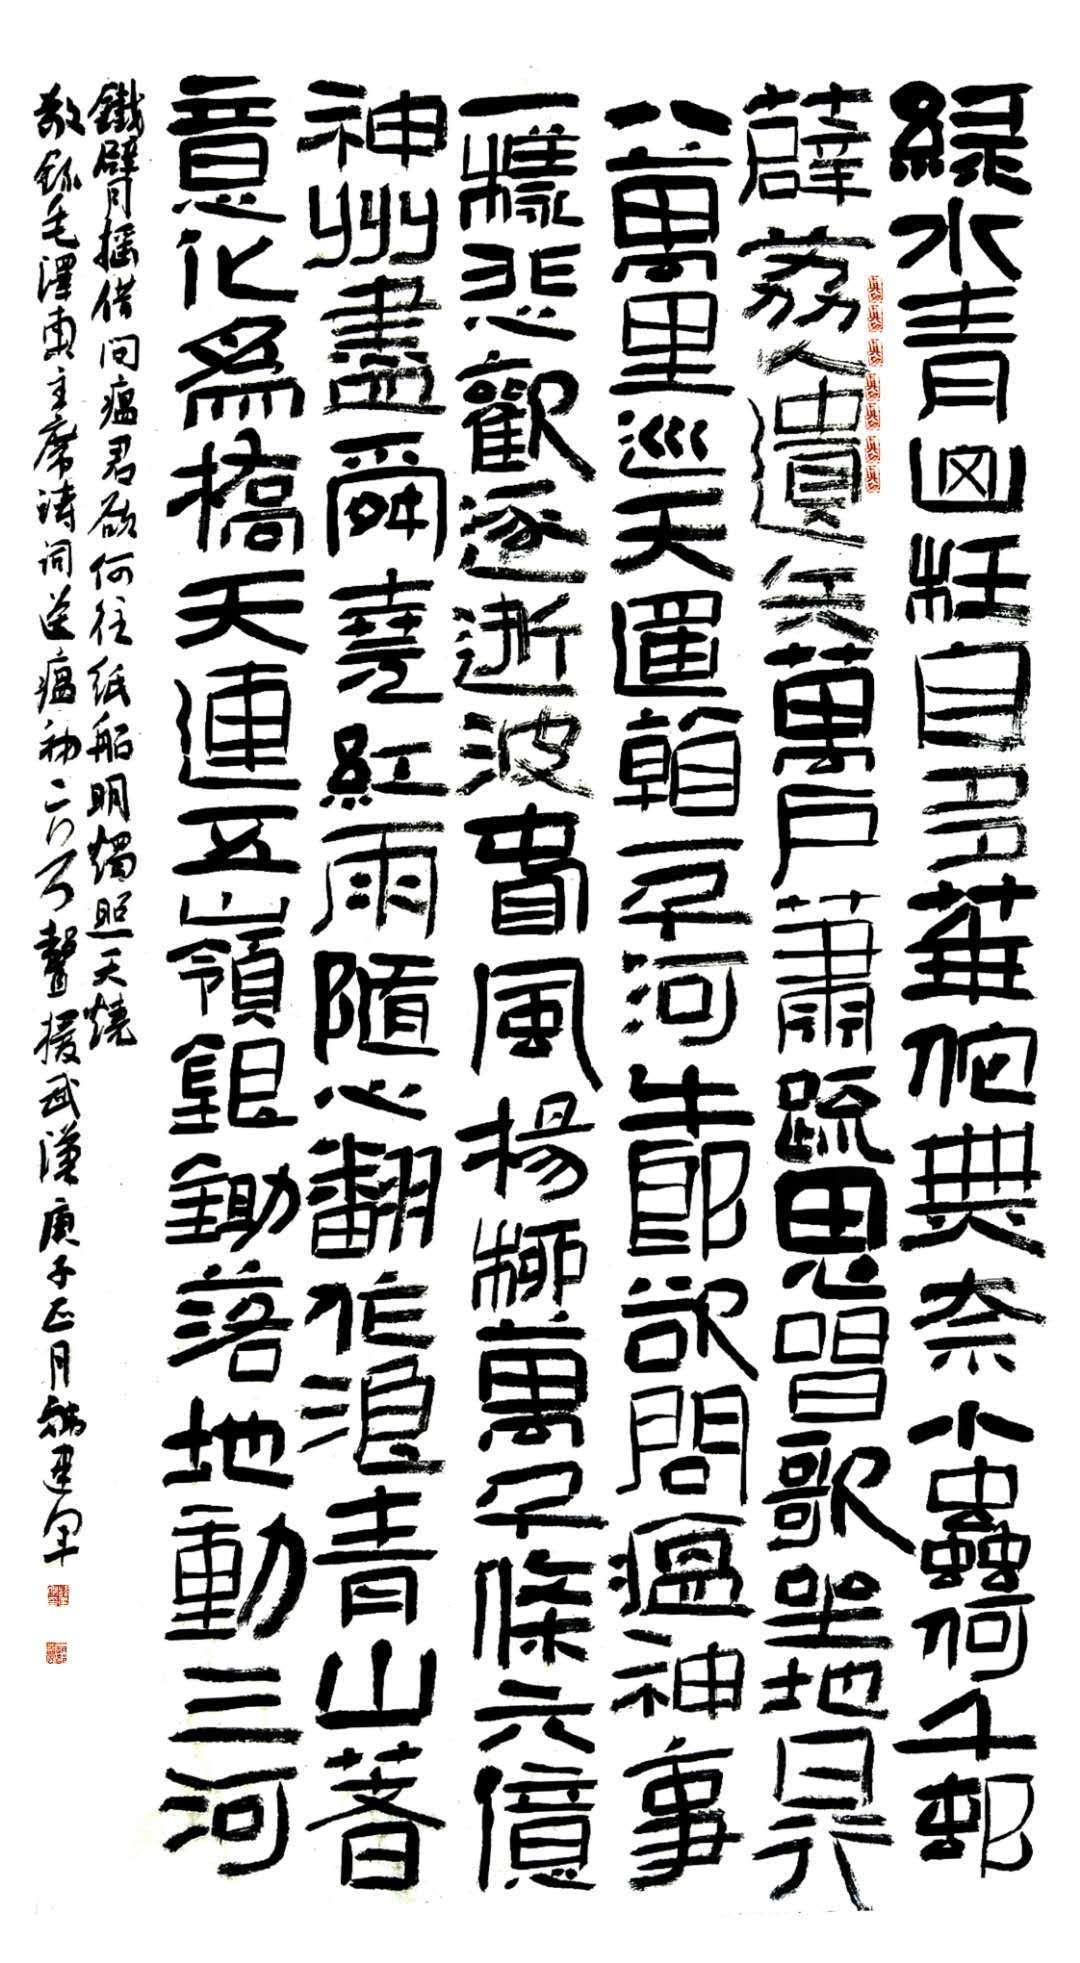 綠水青山枉自多華佗無奈小蟲何千邨
薜荔人遺矢萬戶蕭疏鬼唱歌坐地日行
八萬里巡天遥看一千河牛郎欲問瘟神事
一樣悲歡逐逝波春風楊柳萬千條六億
神州盡舜堯紅雨隨心翻作浪青山著
意化為橋天連五嶺銀鋤落地動三河
鐵臂搖借問瘟君欲何往紙船明燭照天燒
敬錄毛澤東主席詩詞送瘟神二首以聲援武漢庚子正月建軍